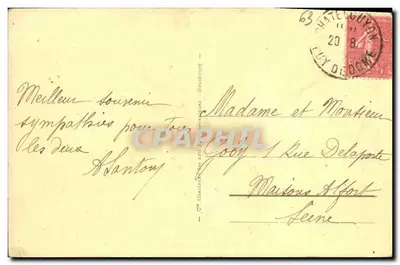 63
CHATELGUYON
20 8
PUY DE DOME
Meilleur souvenir
sympathies pour Tous
les deux
A Santory
Madame et Monsieur
Gody 1 Rue Delaporte
Maisons Alfort
Seine
CPARPHIL